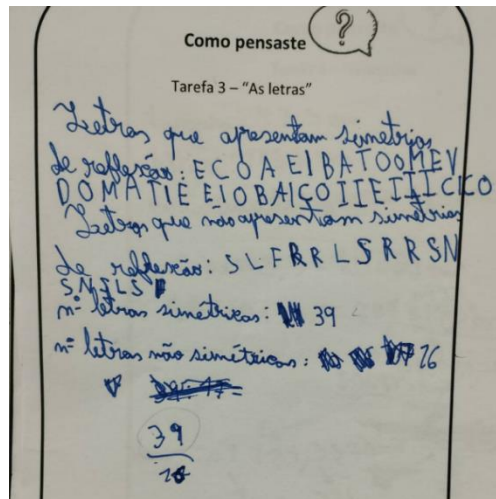 ?
Como pensaste
Tarefa 3 – "As letras"
Letras que apresentam simetrias
de reflexão: E C O A E I B A T O O M E V
D O M A T I E E I O B A I C O I I E I I I C K O
Letras que não apresentam simetrias
de reflexão: S L F R R L S R R S N
S N S L S
nº letras simétricas: 39
nº letras não simétricas: 26
39
26